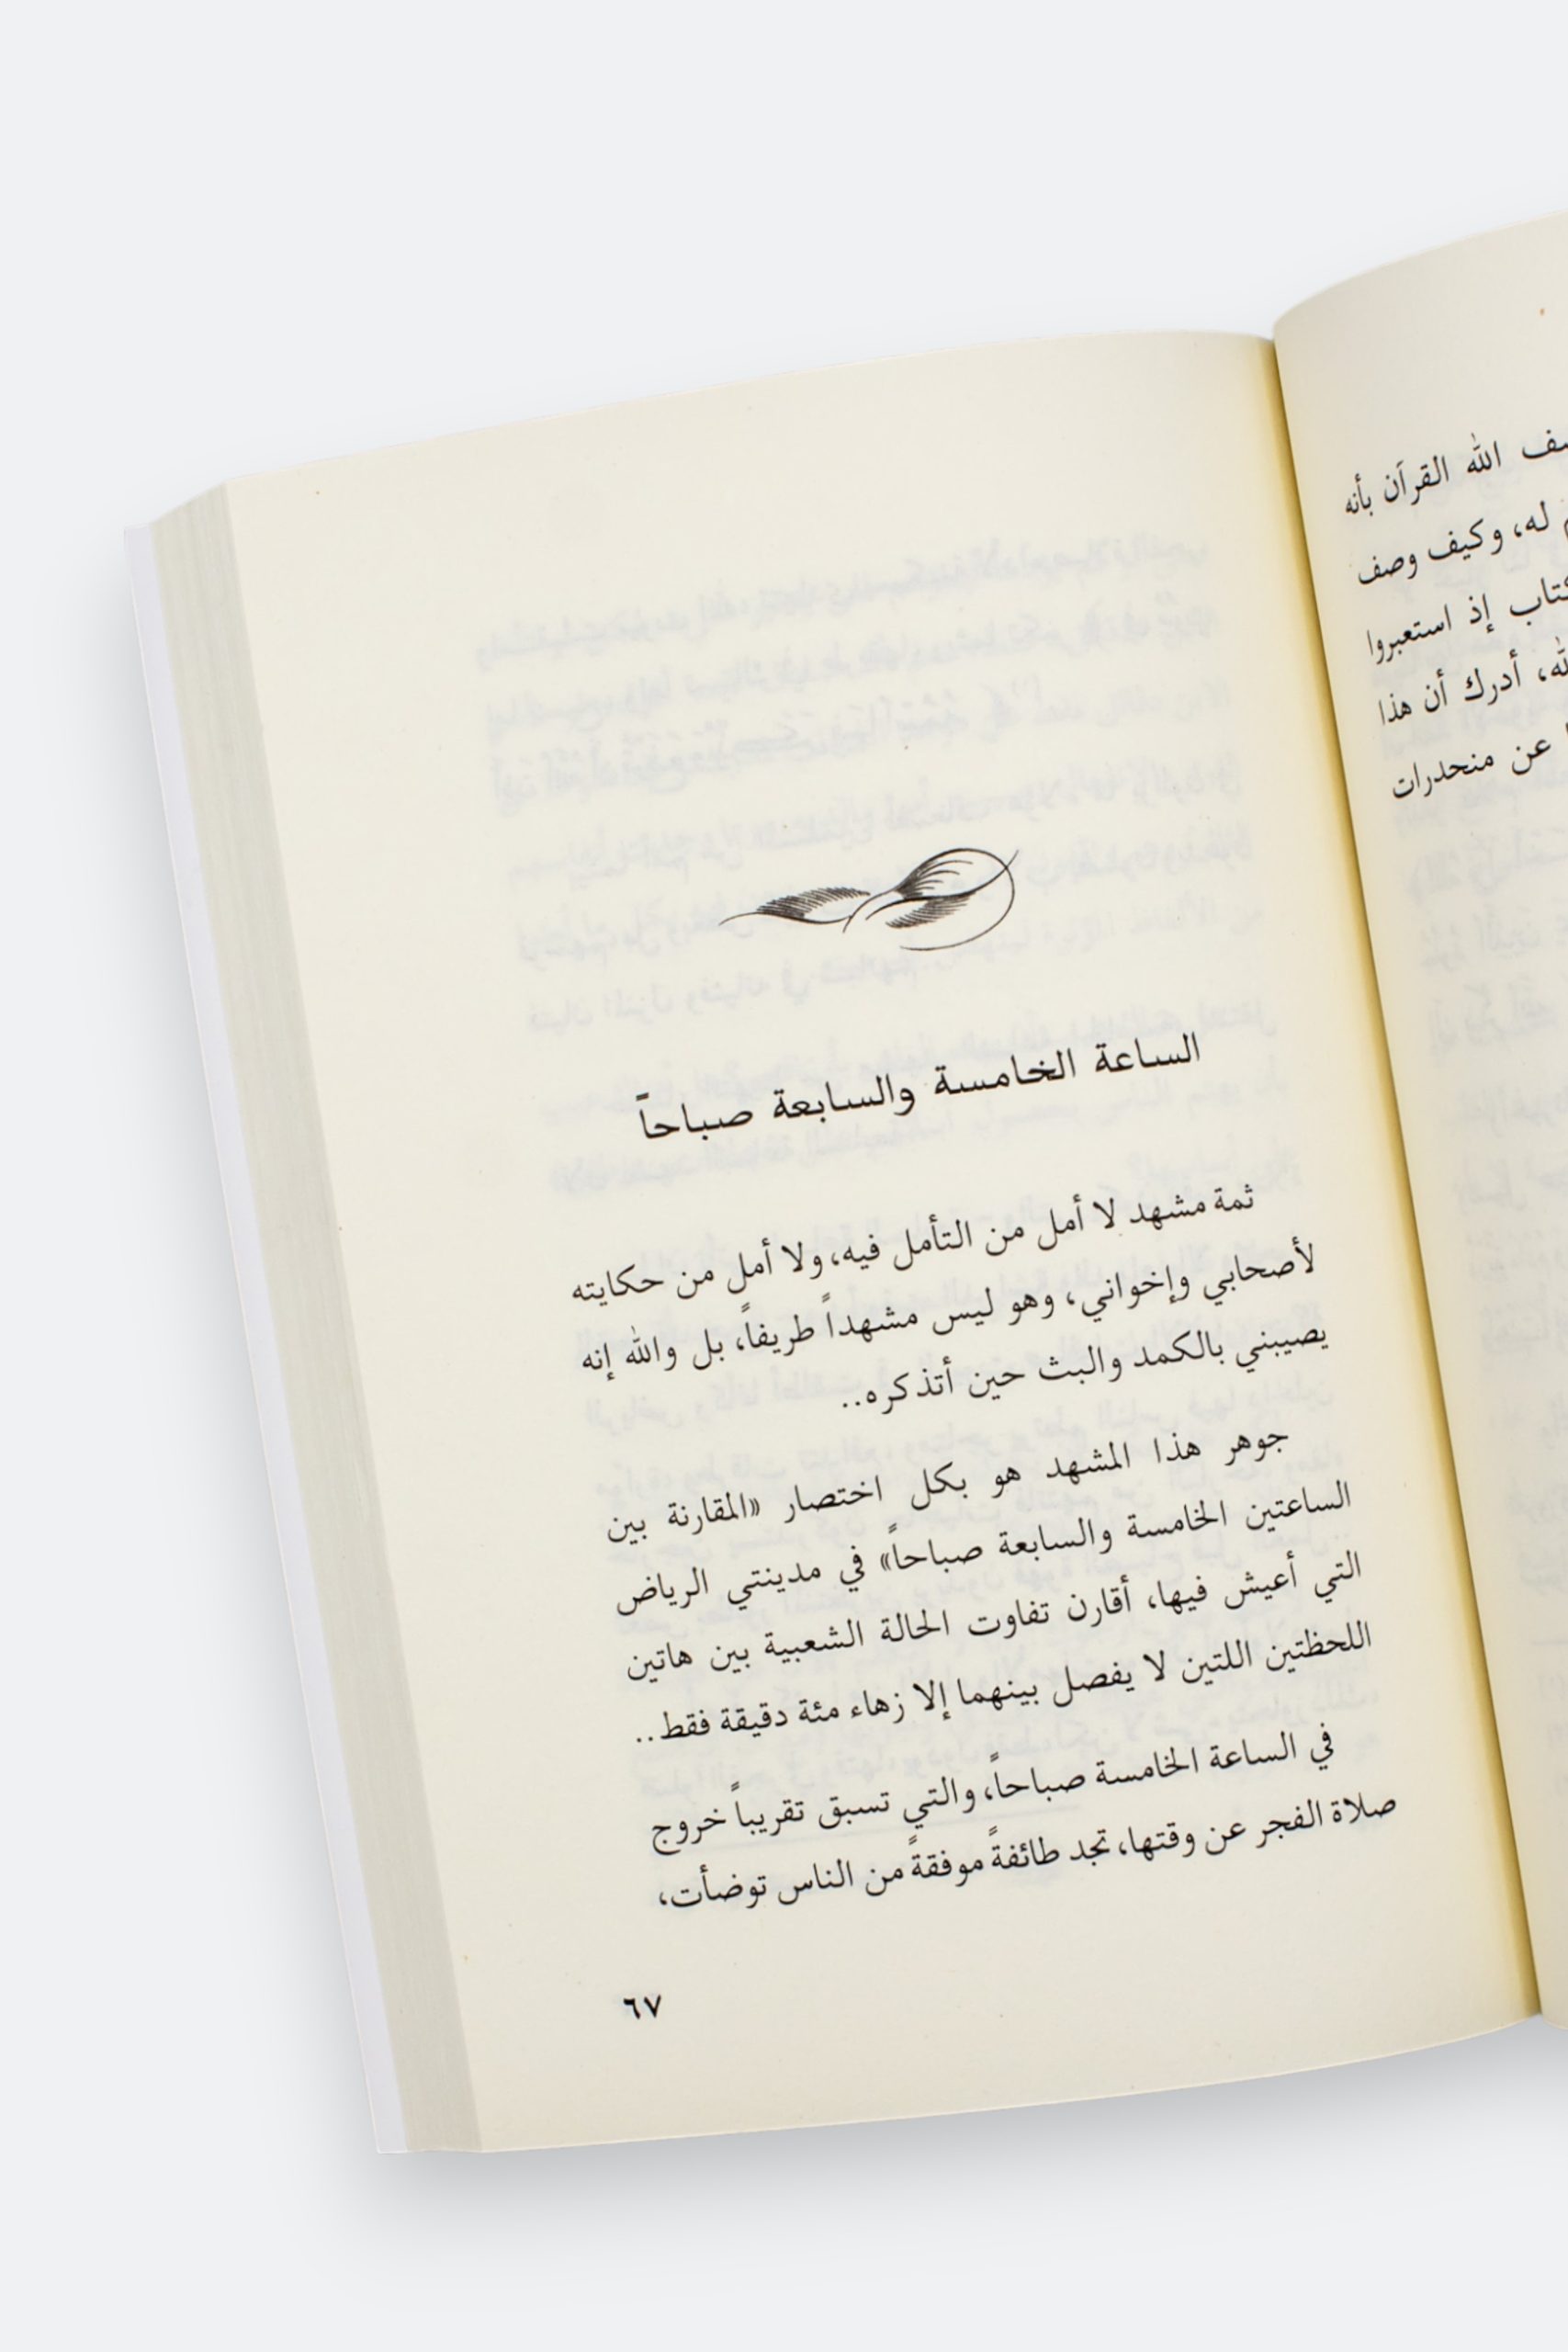 الله القرآن بأنه
له، وكيف وصف
إذ استعبروا
أدرك أن هذا
عن منحدرات
الساعة الخامسة والسابعة صباحاً
ثمة مشهد لا أمل من التأمل فيه، ولا أمل من حكايته
لأصحابي وإخواني، وهو ليس مشهداً طريفاً، بل والله إنه
يصيبني بالكمد والبث حين أتذكره..
جوهر هذا المشهد هو بكل اختصار «المقارنة بين
الساعتين الخامسة والسابعة صباحاً» في مدينتي الرياض
التي أعيش فيها، أقارن تفاوت الحالة الشعبية بين هاتين
اللحظتين اللتين لا يفصل بينهما إلا زهاء مئة دقيقة فقط..
في الساعة الخامسة صباحاً، والتي تسبق تقريباً خروج
صلاة الفجر عن وقتها، تجد طائفةً موفقةً من الناس توضأت،
٦٧